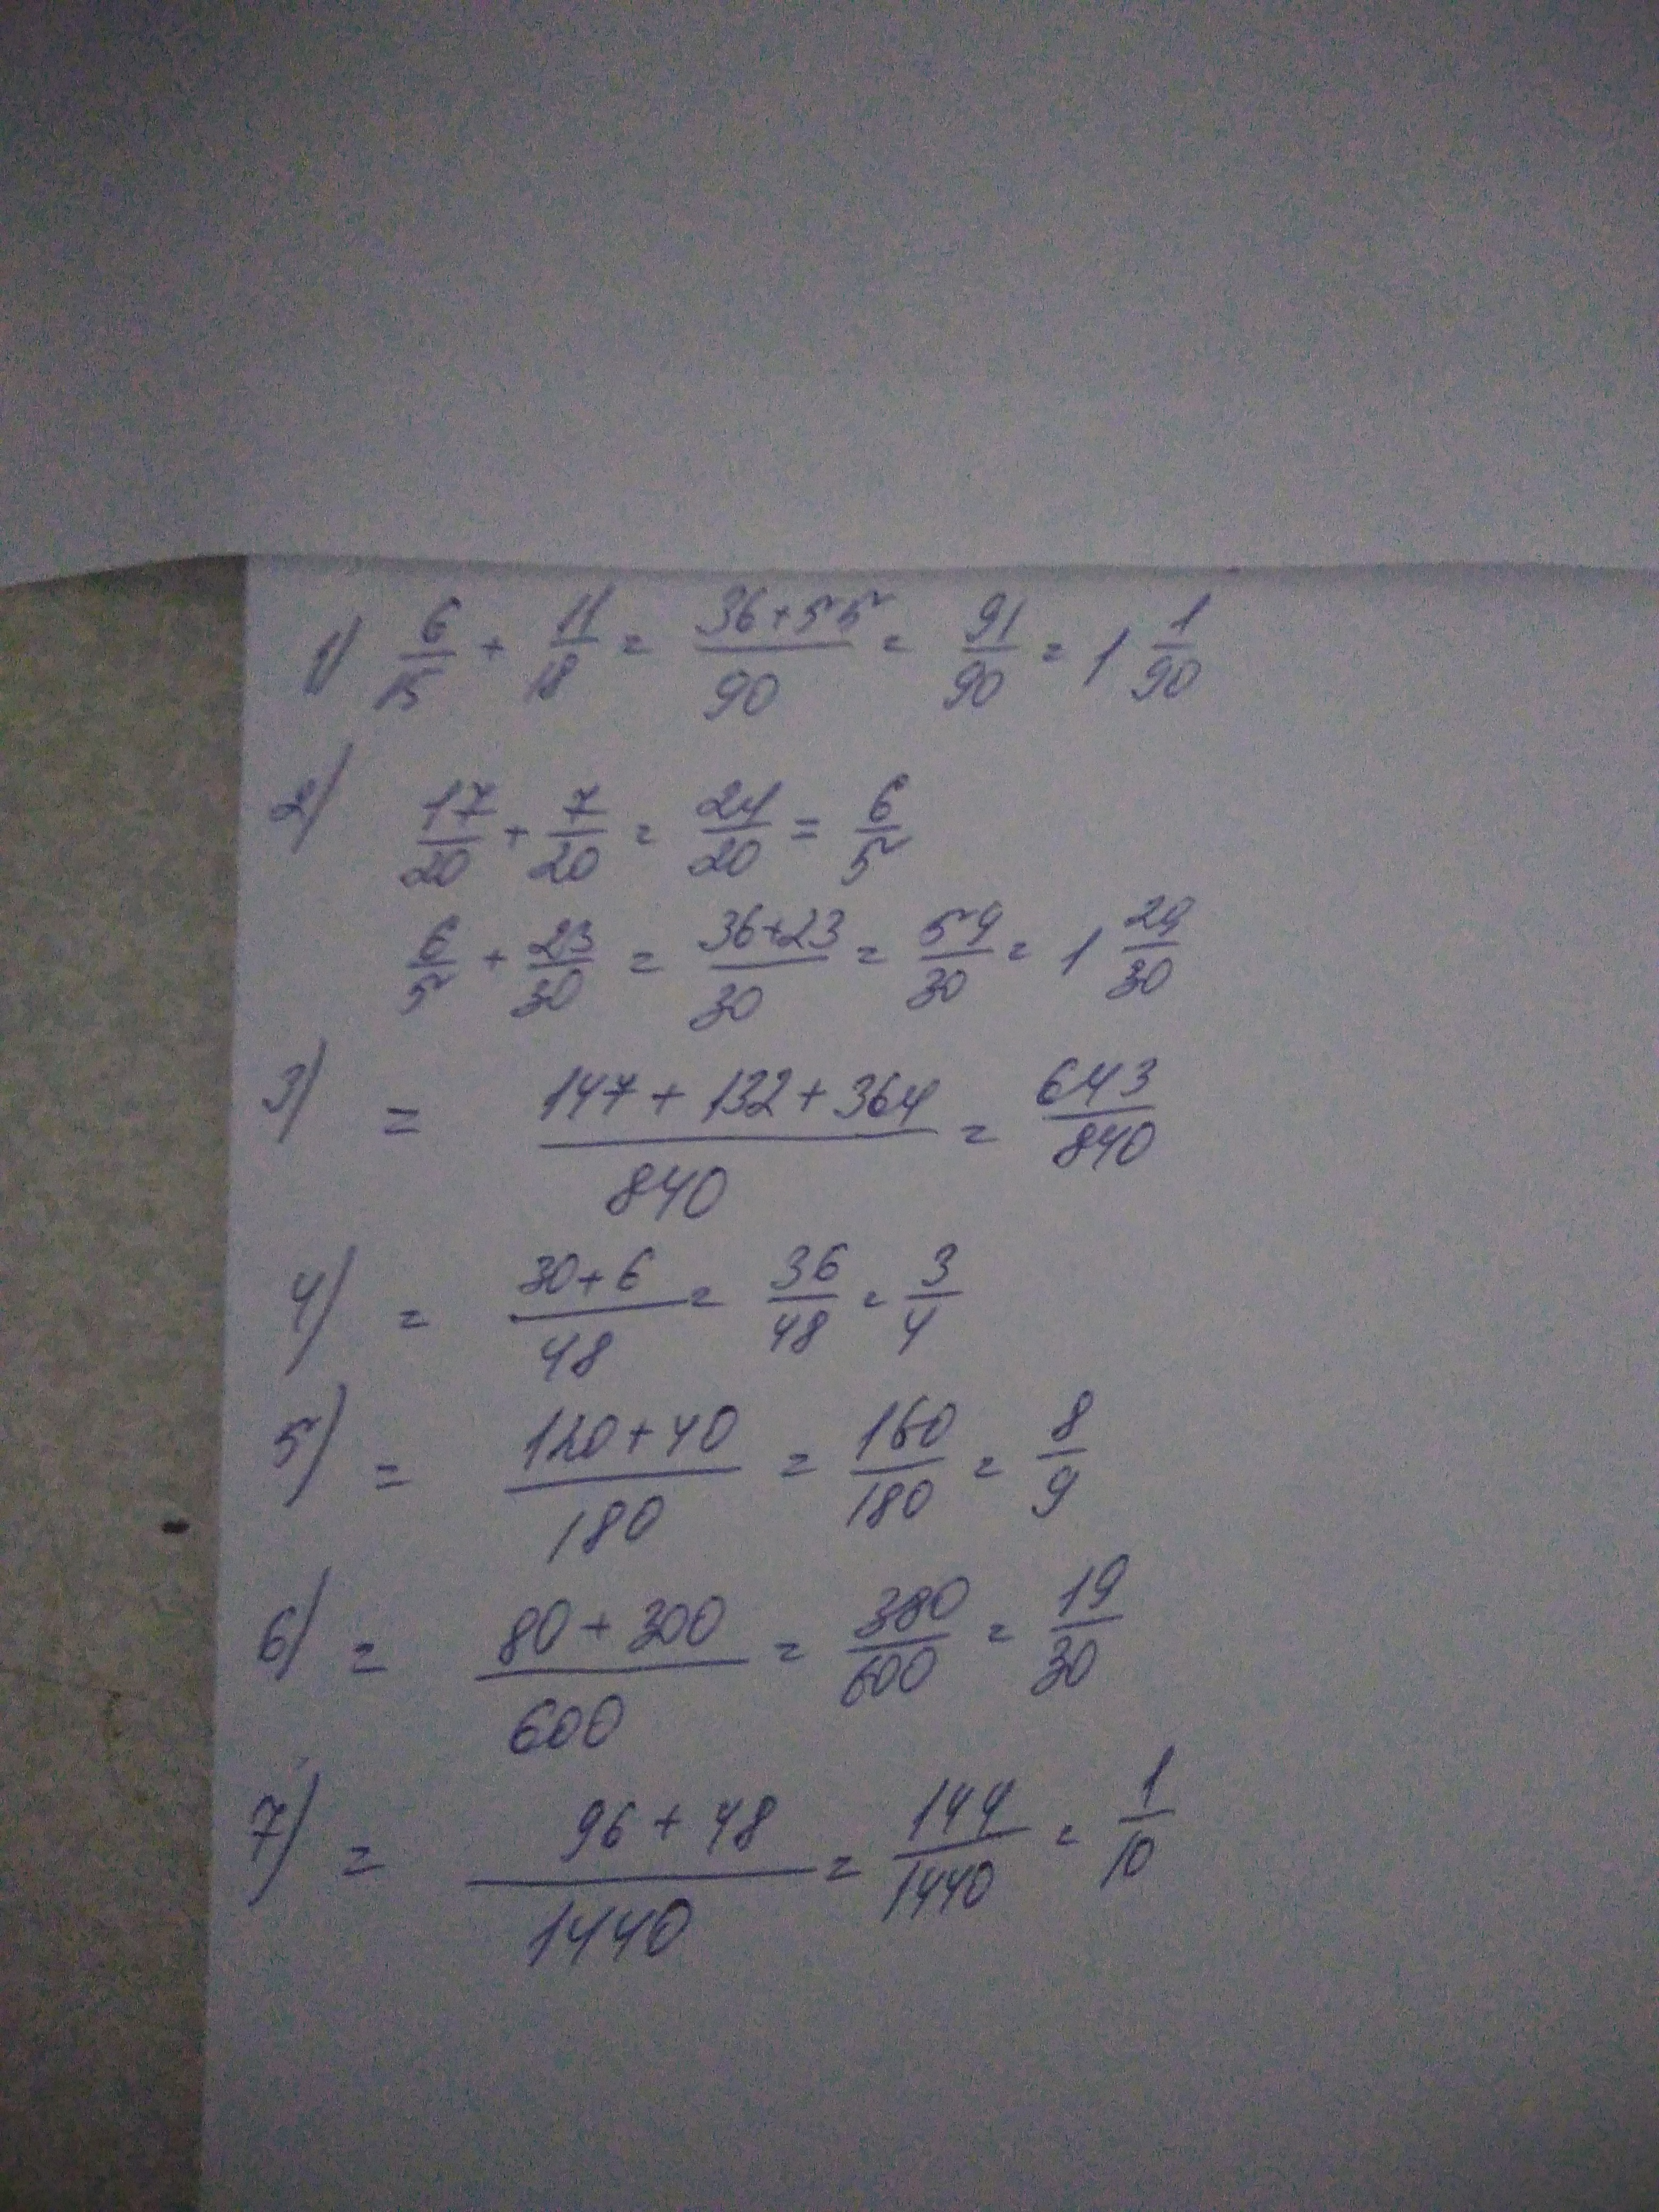 1) 6/15 + 11/18 = 36+55/90 = 91/90 = 1 1/90
2) 17/20 + 7/20 = 24/20 = 6/5
6/5 + 23/30 = 36+23/30 = 59/30 = 1 29/30
3) = 147 + 132 + 364/840 = 643/840
4) = 30+6/48 = 36/48 = 3/4
5) = 120+40/180 = 160/180 = 8/9
6) = 80+300/600 = 380/600 = 19/30
7) = 96+48/1440 = 144/1440 = 1/10